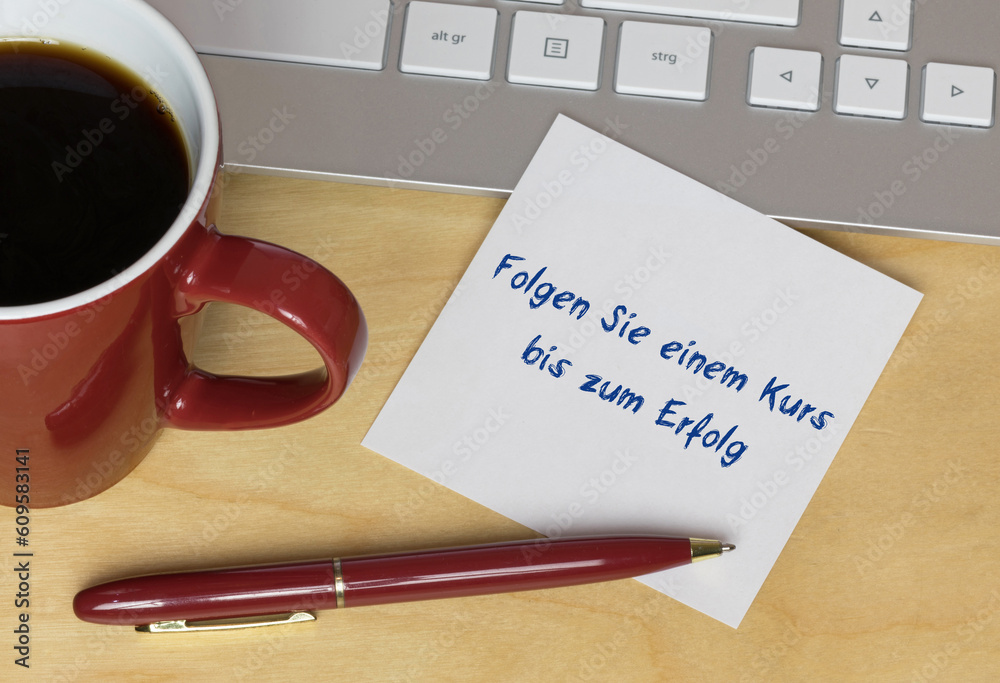 alt gr
strg
Folgen Sie einem Kurs
bis zum Erfolg
Adobe Stock | #609583141